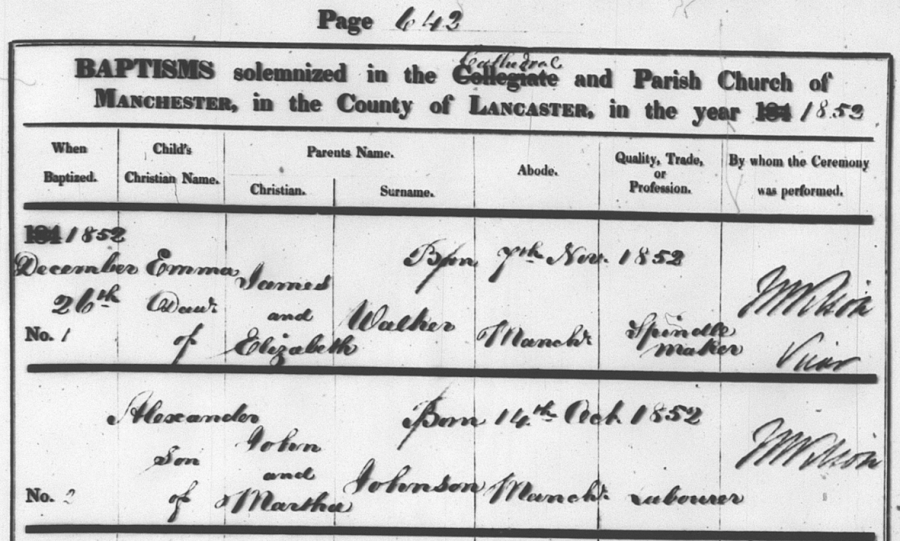 Page 643
Cathedral
BAPTISMS solemnized in the Collegiate and Parish Church of
MANCHESTER, in the County of LANCASTER, in the year 184 1852
When Baptized.
Child's Christian Name.
Parents Name.
Christian.
Surname.
Abode.
Quality, Trade, or Profession.
By whom the Ceremony was performed.
184 1852
Born 7th Nov. 1852
December 26th
No. 1
Emma
Daur
of
James
and
Elizabeth
Walker
Manchr
Spindle
maker
Vicar
Born 14th Oct 1852
No. 2
Alexander
Son
of
John
and
Martha
Johnson
Manchr
Labourer